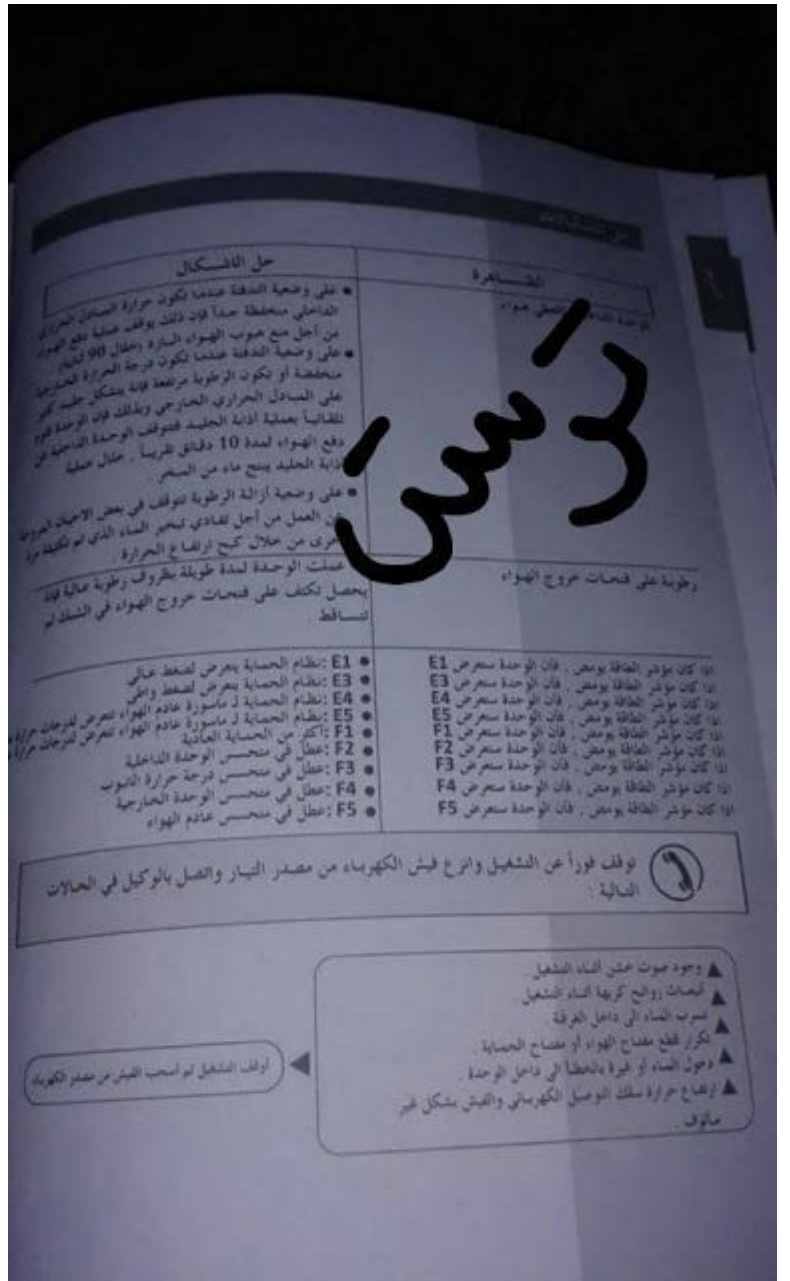 حل الاشكال
الظاهرة
الوحدة لا تعطي هواء
على وضعية التدفئة عندما تكون حرارة المبادل الحراري
الداخلي منخفظة جداً فإن ذلك يوقف عملية دفع الهواء
من أجل منع هبوب الهواء البارد (خلال 90 ثانية)
على وضعية التدفئة عندما تكون درجة الحرارة الخارجية
منخفضة أو تكون الرطوبة مرتفعة فإنة يتشكل جليد
على المبادل الحراري الخارجي وبذلك فإن الوحدة تقوم
تلقائياً بعملية أذابة الجليد فتتوقف الوحدة الداخلية عن
دفع الهواء لمدة 10 دقائق تقريباً . خلال عملية
أذابة الجليد ينتج ماء من المبخر .
على وضعية أزالة الرطوبة تتوقف في بعض الاحيان المروحة
عن العمل من أجل تفادي تبخير الماء الذي تم تكثيفة مرة
أخرى من خلال كبح ارتفاع الحرارة .
رطوبة على فتحات خروج الهواء
عملت الوحدة لمدة طويلة بظروف رطوبة عالية فإنة
يحصل تكثف على فتحات خروج الهواء في الشبك ثم
تتساقط .
اذا كان مؤشر الطاقة يومض , فأن الوحدة ستعرض E1
اذا كان مؤشر الطاقة يومض , فأن الوحدة ستعرض E3
اذا كان مؤشر الطاقة يومض , فأن الوحدة ستعرض E4
اذا كان مؤشر الطاقة يومض , فأن الوحدة ستعرض E5
اذا كان مؤشر الطاقة يومض , فأن الوحدة ستعرض F1
اذا كان مؤشر الطاقة يومض , فأن الوحدة ستعرض F2
اذا كان مؤشر الطاقة يومض , فأن الوحدة ستعرض F3
اذا كان مؤشر الطاقة يومض , فأن الوحدة ستعرض F4
اذا كان مؤشر الطاقة يومض , فأن الوحدة ستعرض F5
E1 :نظام الحماية يتعرض لضغط عالي
E3 :نظام الحماية يتعرض لضغط واطي
E4 :نظام الحماية لـ ماسورة عادم الهواء تتعرض لدرجات حرارة
E5 :نظام الحماية لـ ماسورة عادم الهواء تتعرض لدرجات حرارة
F1 :أكثر من الحماية العادية
F2 :عطل في متحسس الوحدة الداخلية
F3 :عطل في متحسس درجة حرارة انبوب
F4 :عطل في متحسس الوحدة الخارجية
F5 :عطل في متحسس عادم الهواء
توقف فوراً عن التشغيل وانزع فيش الكهرباء من مصدر التيار واتصل بالوكيل في الحالات
التالية :
وجود صوت خشن أثناء التشغيل .
انبعاث روائح كريها أثناء التشغيل .
تسرب الماء الى داخل الغرفة
تكرار قطع مفتاح الهواء أو مفتاح الحماية .
دخول الماء أو غيرة بالخطأ الى داخل الوحدة .
ارتفاع حرارة سلك التوصيل الكهربائي والفيش بشكل غير
مألوف .
أوقف التشغيل ثم أسحب الفيش من مصدر الكهرباء